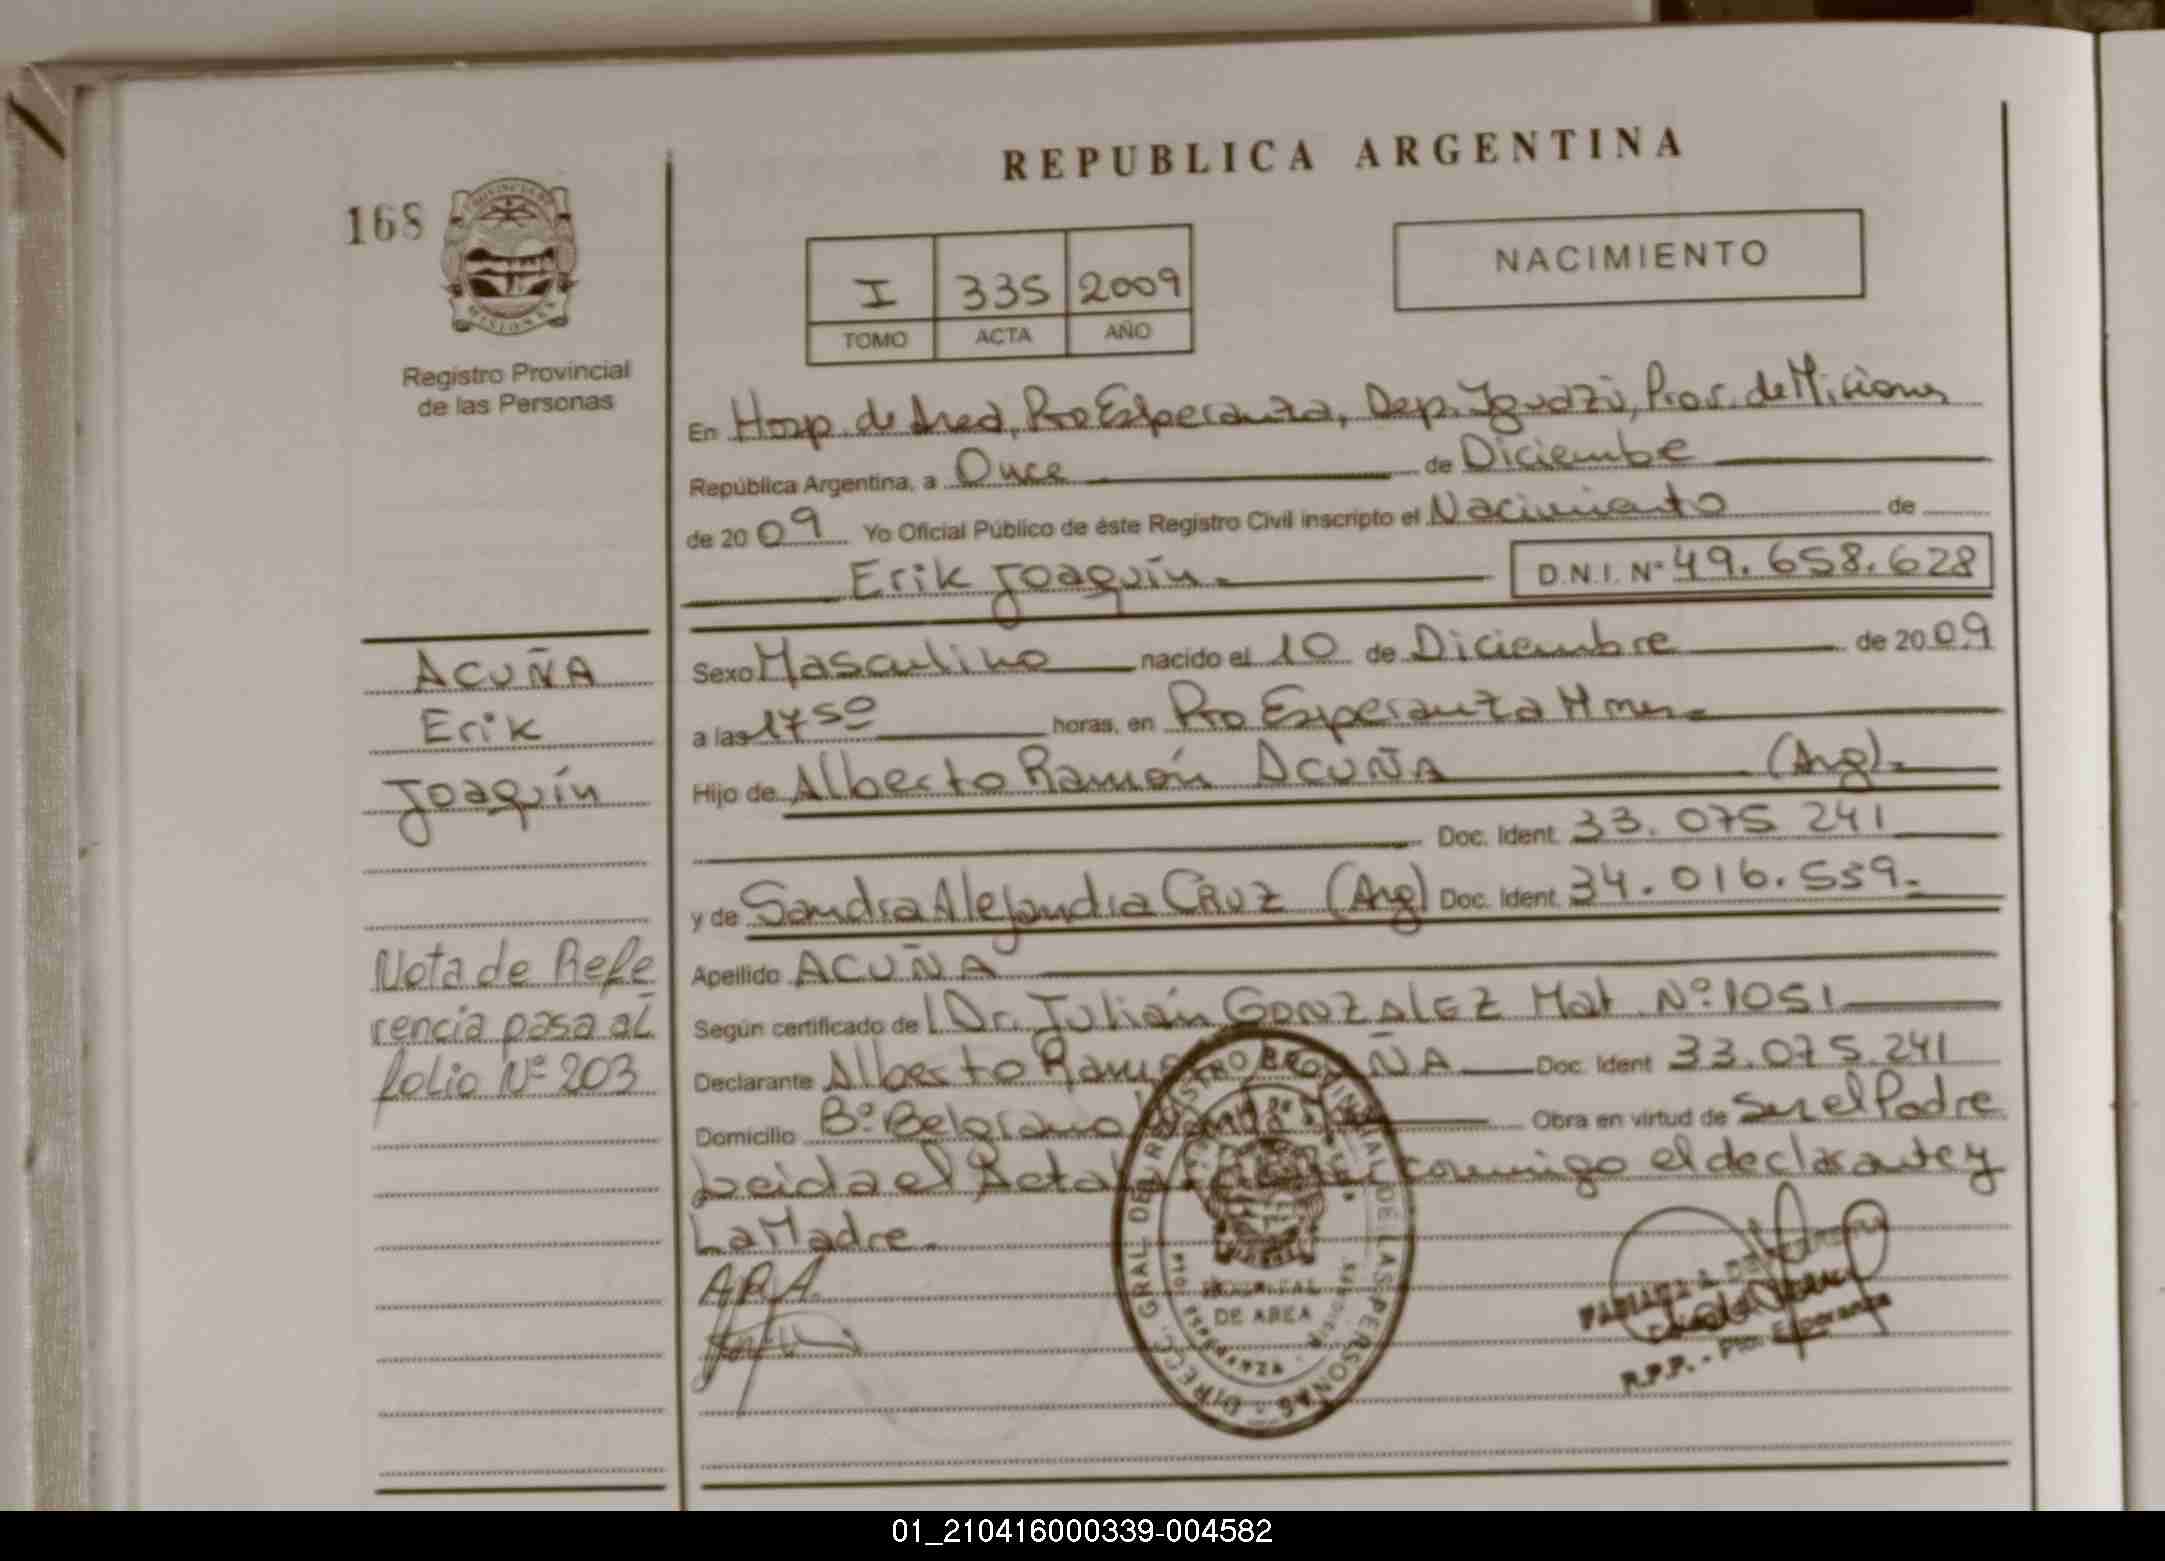 REPUBLICA ARGENTINA
168
PROVINCIA DE
MISIONES
Registro Provincial
de las Personas
I 335 2009
TOMO ACTA AÑO
NACIMIENTO
En Hosp. de Area, Pto Esperanza, Dep. Iguazú, Prov. de Misiones
República Argentina, a Once de Diciembe
de 2009 Yo Oficial Público de éste Registro Civil inscripto el Nacimiento de
Erik Joaquín
D.N.I. Nº 49.658.628
ACUÑA
Erik
Joaquín
Sexo Masculino nacido el 10 de Diciembre de 2009
a las 17 50 horas, en Pto Esperanza Mnes
Hijo de Alberto Ramón ACUÑA (Arg).
Doc. Ident. 33.075 241
y de Sandra Alejandra CRUZ (Arg) Doc. Ident. 34.016.559.
Apellido ACUÑA
Según certificado de Dr. Julián GONZALEZ Mat. Nº 1051
Declarante Alberto Ram ÑA Doc. Ident 33.075.241
Domicilio Bº Belgrano Obra en virtud de Ser el Padre
Leida el Acta conmigo el declarante y
La Madre.
Nota de Refe
rencia pasa al
folio Nº 203
A.R.A.
DIRECC. GRAL. DEL REGISTRO PROVINCIAL DE LAS PERSONAS
HOSPITAL
DE AREA
R.P.P. - Pto. Esperanza
01_210416000339-004582